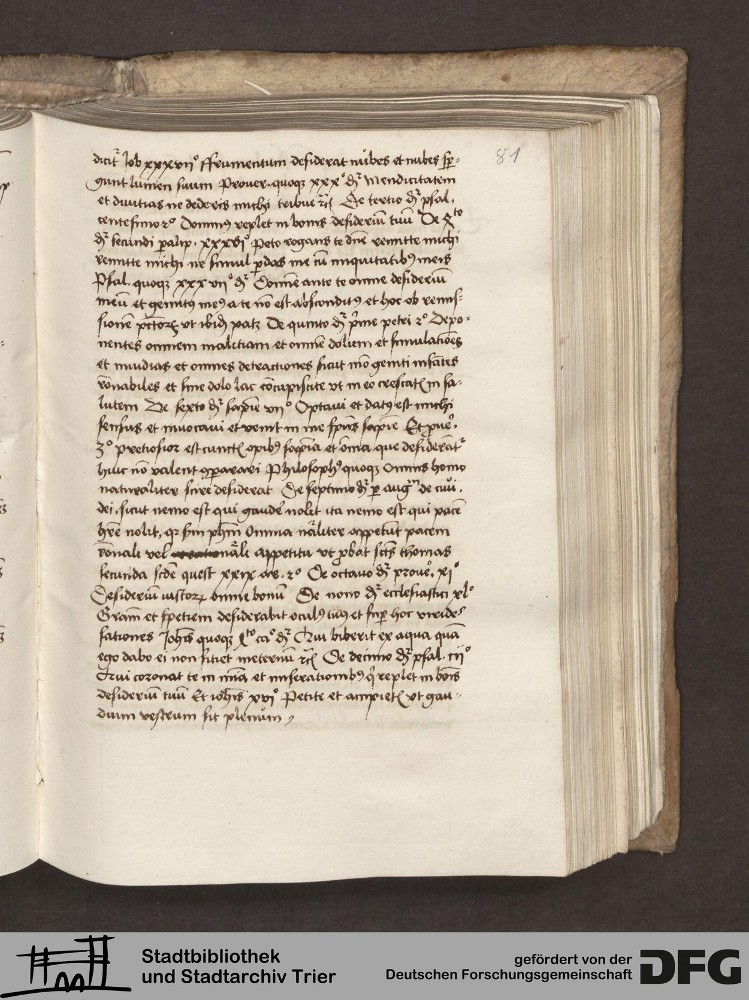 81
dicit᷑ Job xxxvii° ffrumentum desiderat nubes et nubes sp̄-
gunt lumen suum Prouer. quoqz xxx° dr̄ Mendicitatem
et diuitias ne dederis michi tribue rc̄ De tertio dr̄ psal.
centesimo 2° Dominus replet in bonis desideriū tuū De 4to
dr̄ secundi paralip. xxxvi° Peto rogans te dn̄e remitte michi
remitte michi ne simul ꝑdas me cū iniquitatibꝰ meis
Psal. quoqz xxxvii° dr̄ Domīe ante te omne desideriū
meū et gemitꝰ meꝰ a te nō est absconditꝰ et hoc ob remis-
sionē pctōrꝝ vt ibid̄ patz De quinto dr̄ p̄me petri 2° Depo-
nentes omnem malitiam et omnē dolum et simulatiōes
et inuidias et omnes detractiones sicut mō geniti infātes
rōnabiles et sine dolo lac cōcupiscite vt in eo crescatꝭ in sa-
lutem De sexto dr̄ sapīe vii° Optaui et datꝰ est michi
sensus et inuocaui et venit in me spūs sapīe Et ꝓue.
3° pretiosior est cunctꝭ opibꝰ sapīa et oīa que desiderāt᷑
huic nō valent ꝯparari Philosophꝰ quoqz Omnis homo
naturaliter scire desiderat De septimo dr̄ p aug. de ciui.
dei, sicut nemo est qui gaudē nolit ita nemo est qui pacē
hr̄e nolit, qr̄ scd̄m ph̄m Omnia nāliter appetūt pacem
rōnali vel nāli appetitu vt ꝓbat sct̄s thomas
secunda scd̄e quest xxix ar. 2° De octauo dr̄ prouer. xi°
Desideriū iustorꝝ omne bonū De nono dr̄ ecclesiastici xl°
Gratiam et spetiem desiderabit oculꝰ tuꝰ et suꝑ hoc virides
sationes Joh̄is quoqz 4to ca° dr̄ Qui biberit ex aqua quā
ego dabo ei non sitiet ineternū rc̄ De decimo dr̄ psal. cii°
Qui coronat te in mīa et miserationibꝰ q̇ replet in bōis
desideriū tuū Et ioh̄is xvi° Petite et accipietꝭ vt gau-
dium vestrum sit plenum,
Stadtbibliothek
und Stadtarchiv Trier
gefördert von der
Deutschen Forschungsgemeinschaft
DFG